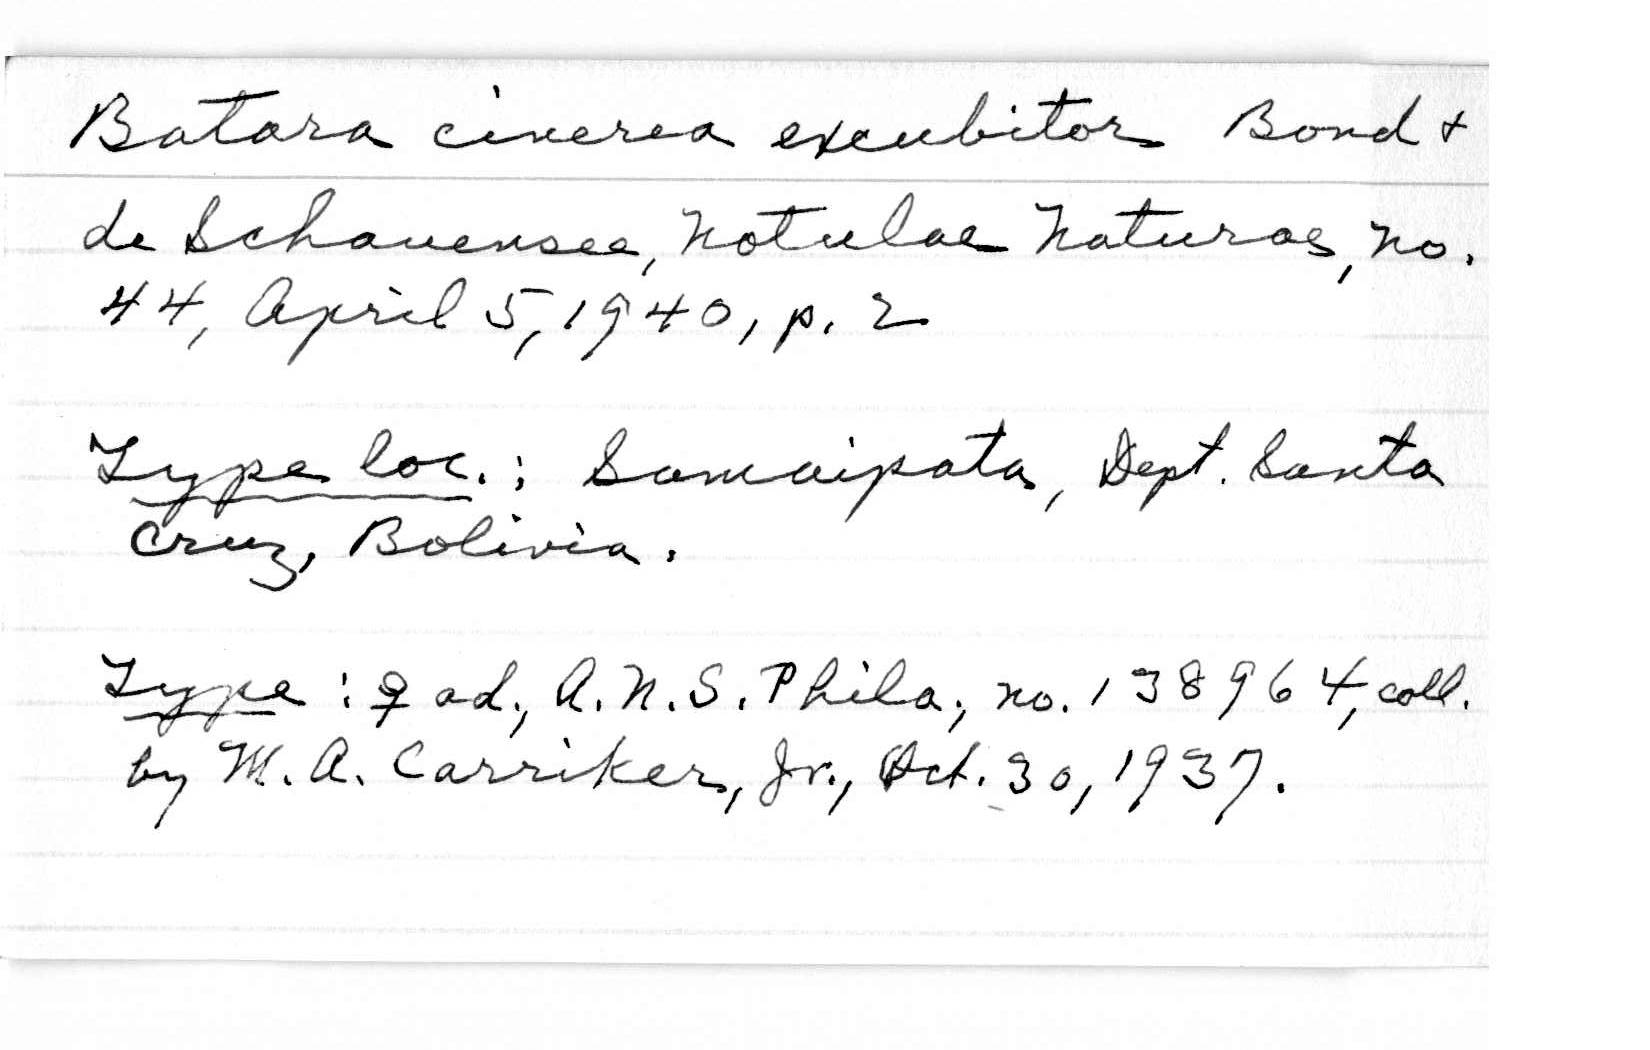 Batara cinerea excubitor Bond +
de Schauensee, Notulae Naturae, no.
44, April 5, 1940, p. 2
Type loc.: Samaipata, Dept. Santa
Cruz, Bolivia.
Type: ♀ ad., A.N.S. Phila., no. 138964, coll.
by M. A. Carriker, Jr., Oct. 30, 1937.